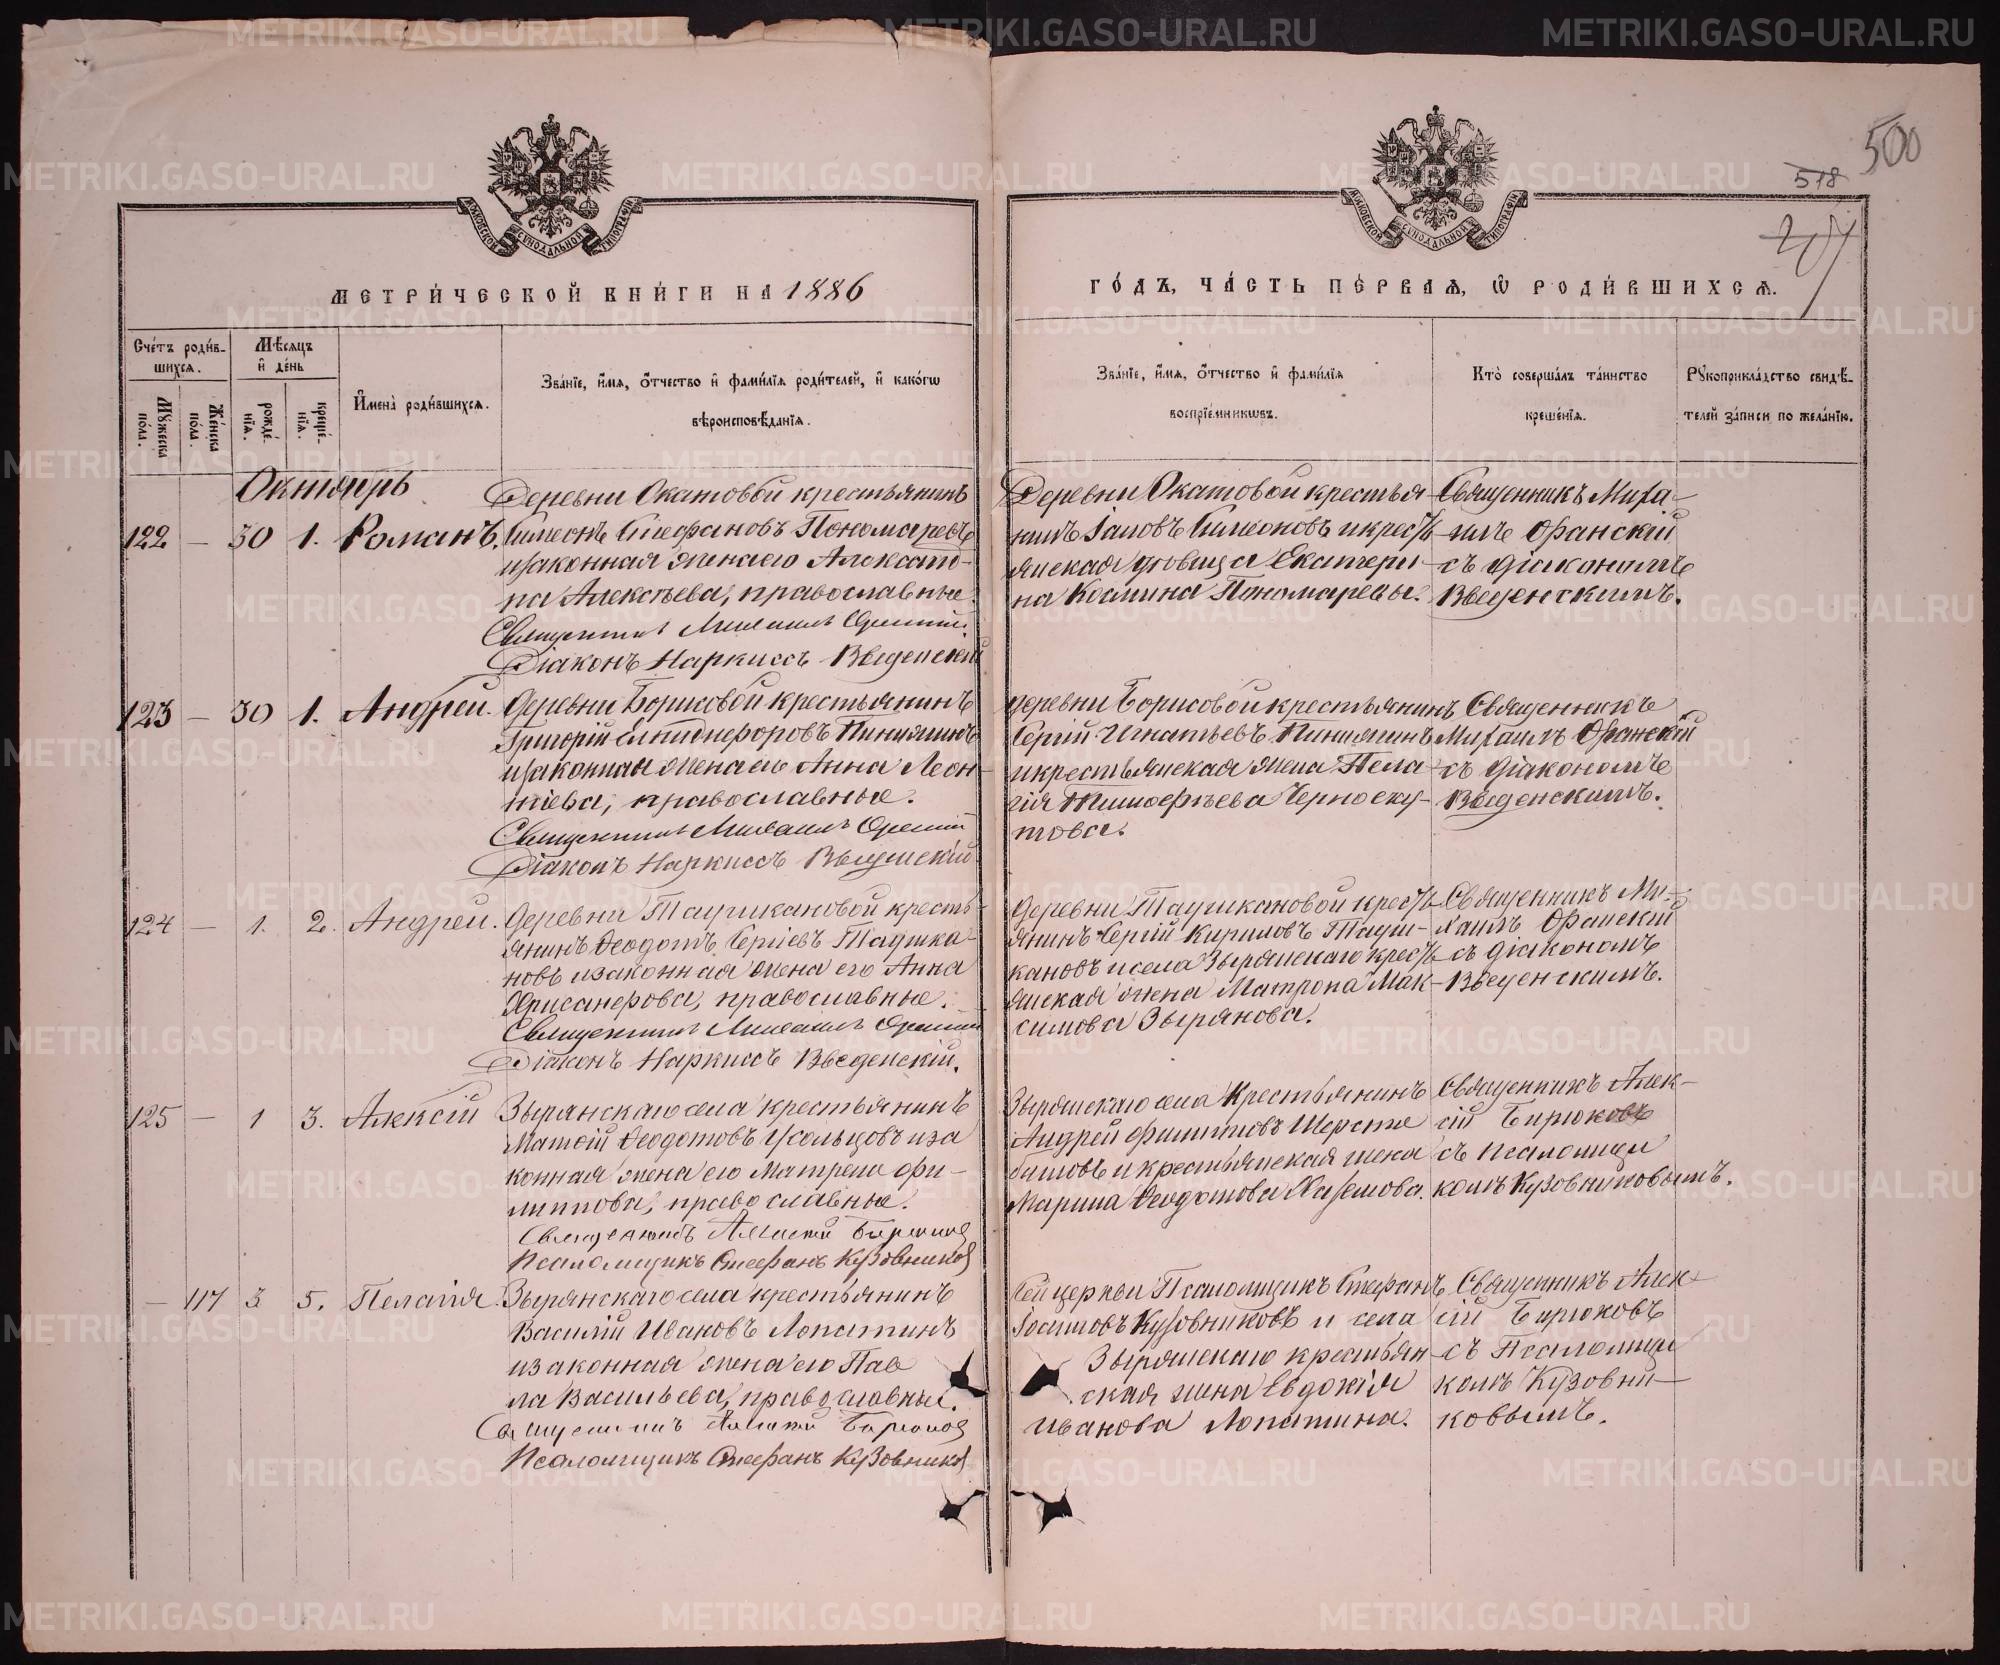 500
518
МОСКОВСКОЙ СѴНОДАЛЬНОЙ ТИПОГРАФІИ
МОСКОВСКОЙ СѴНОДАЛЬНОЙ ТИПОГРАФІИ
МЕТРИ́ЧЕСКОЙ КНИ́ГИ НА 1886
ГО́ДЪ, ЧА́СТЬ ПЕ́РВАЯ, Ѡ РОДИ́ВШИХСЯ.
Сче́тъ роди́в-
шихся.
Мѣ́сяцъ
и҆ де́нь
Мꙋ́жеска по́ла.
Же́нска по́ла.
рожде́нїя.
креще́нїя.
И҆мена̀ роди́вшихся.
Зва́нїе, и҆́мя, ѻ҆́тчество и҆ фами́лїя роди́телей, и҆ како́гѡ
вѣроисповѣ́данїя.
Зва́нїе, и҆́мя, ѻ҆́тчество и҆ фами́лїя
воспрїе́мникѡвъ.
Кто̀ соверша́лъ та́инство
креще́нїя.
Рꙋкоприкла́дство свидѣ́-
телей за́писи по жела́нїю.
Октябрь
122 — 30 1. Романъ.
Деревни Окатовой крестьянинъ
Симеонъ Стефановъ Пономаревъ
и законная жена его Алексат-
ра Алексѣева, православные.
Священникъ Михаилъ Оранскій
Діаконъ Наркиссъ Введенскій
Деревни Окатовой крестья-
нинъ Іаковъ Симеоновъ и крестьь
янская дѣвица Екатери-
на Космина Пономаревы.
Священникъ Миха-
илъ Оранскій
съ діакономъ
Введенскимъ.
123 — 30 1. Андрей.
Деревни Борисовой крестьянинъ
Григорій Елпидифоровъ Пинягинъ
и законная жена его Анна Леон-
тіева, православные.
Священникъ Михаилъ Оранскій
Діаконъ Наркиссъ Введенскій
Деревни Борисовой крестьянинъ
Сергій Игнатьевъ Пинягинъ
и крестьянская жена Пела-
гія Тимофѣева Черноску-
това.
Священникъ
Михаилъ Оранскій
съ діакономъ
Введенскимъ.
124 — 1. 2. Андрей.
Деревни Таушкановой кресть-
янинъ Ѳеодотъ Сергіевъ Таушка-
новъ и законная жена его Анна
Хрисанфова, православные.
Священникъ Михаилъ Оранскій
Діаконъ Наркиссъ Введенскій.
Деревни Таушкановой кресть
янинъ Сергій Кириловъ Тауш-
кановъ и села Зырянскаго кресть
янская жена Матрона Мак-
симова Зырянова.
Священникъ Ми-
хаилъ Оранскій
съ діакономъ
Введенскимъ.
125 — 1 3. Алексій
Зырянскаго села крестьянинъ
Матѳій Ѳеодотовъ Усольцовъ и за
конная жена его Матрена Фи-
липпова, православные.
Священникъ Алексій Бирюковъ
Псаломщикъ Стефанъ Кузовниковъ
Зырянскаго села крестьянинъ
Андрей Филипповъ Шерстне
битовъ и крестьянская жена
Марина Ѳеодотова
Священникъ Алек-
сій Бирюковъ
съ псаломщи
комъ Кузовниковымъ.
— 117 3 5. Пелагія.
Зырянскаго села крестьянинъ
Василій Ивановъ Лопатинъ
и законная жена его Пав
ла Васильева, православные.
Священникъ Алексій Бирюковъ
Псаломщикъ Стефанъ Кузовниковъ
Сей церкви Псаломщикъ Стефанъ
Іосифовъ Кузовниковъ и села
Зырянскаго крестьян
ская жена Евдокія
Иванова Лопатина.
Священникъ Алек-
сій Бирюковъ
съ Псаломщи
комъ Кузовни-
ковымъ.
METRIKI.GASO-URAL.RU